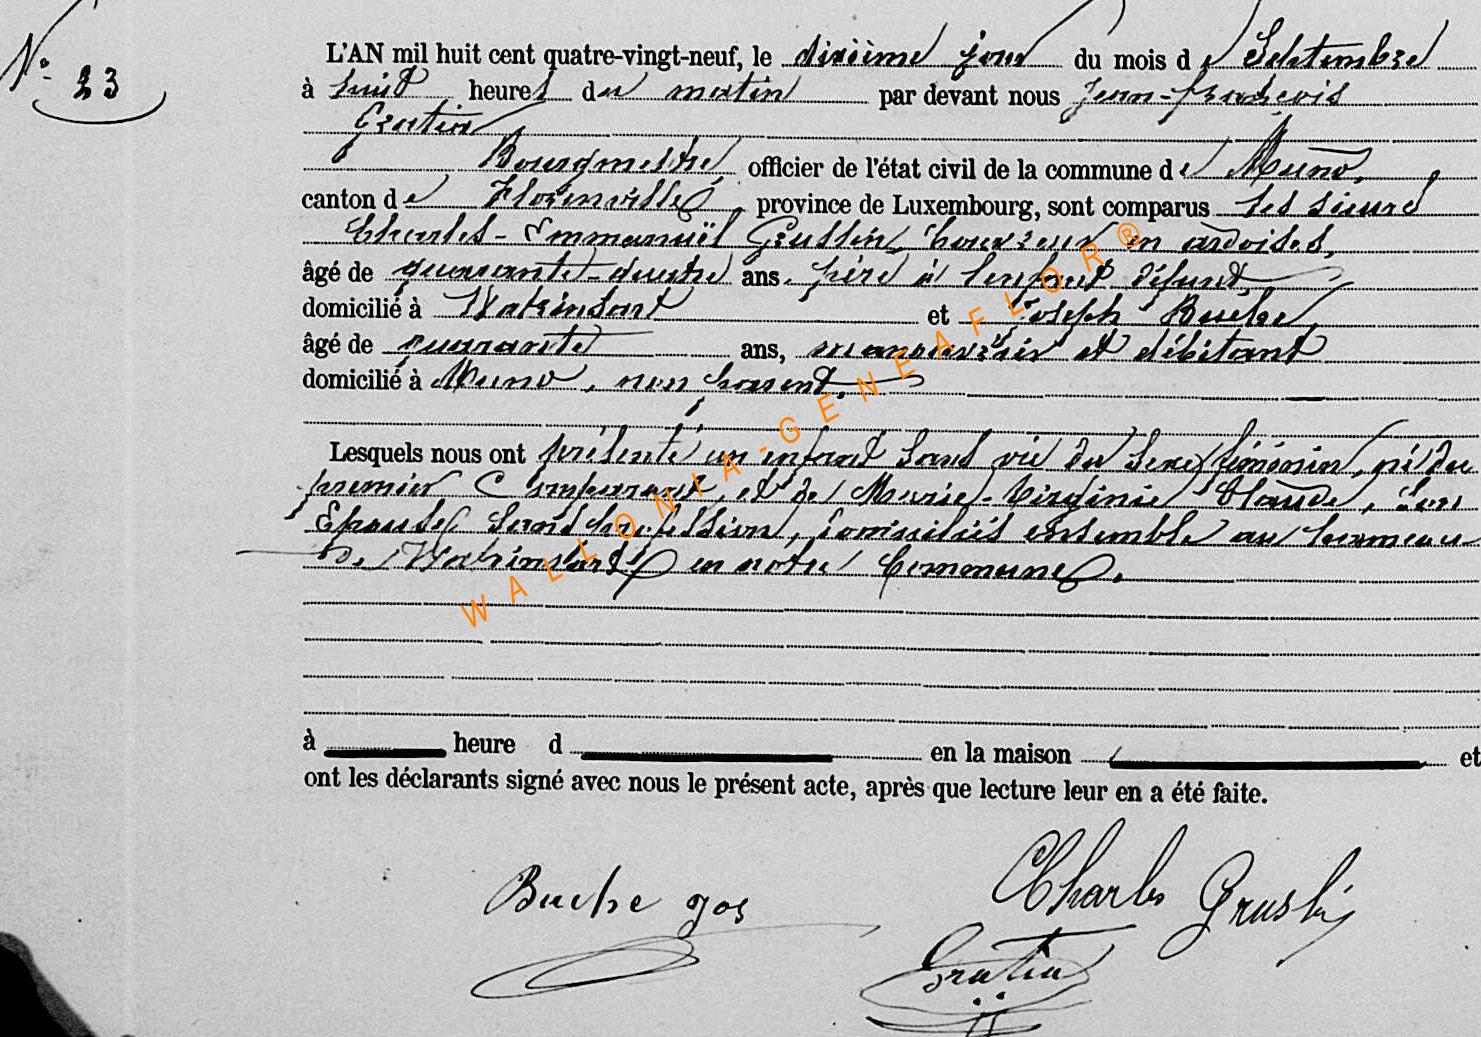 N° 23
L'AN mil huit cent quatre-vingt-neuf, le dixième jour du mois de Septembre
à huit heures du matin par devant nous Jean-François
Gratia
Bourgmestre, officier de l'état civil de la commune de Muno,
canton de Florenville, province de Luxembourg, sont comparus les sieurs
Charles-Emmanuël Grustin, en ardoises,
âgé de quarante-quatre ans, père à l'enfant défunt,
domicilié à Watrinsart et Joseph Buche,
âgé de quarante ans, manouvrier et débitant
domicilié à Muno, non parent,
Lesquels nous ont présenté un enfant sans vie du sexe féminin, né du
premier Comparant, et de Marie-Virginie Claude, son
Epouse, sans profession, domiciliés ensemble au hameau
de Watrinsart, en notre Commune.
à heure d en la maison et
ont les déclarants signé avec nous le présent acte, après que lecture leur en a été faite.
Buche Jos Charles Grustin
Gratia
WALLONIA-GENEAFLOR®